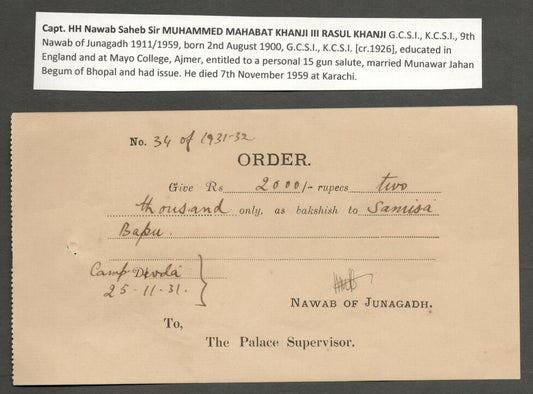 Capt. HH Nawab Saheb Sir MUHAMMED MAHABAT KHANJI III RASUL KHANJI G.C.S.I., K.C.S.I., 9th
Nawab of Junagadh 1911/1959, born 2nd August 1900, G.C.S.I., K.C.S.I. [cr.1926], educated in
England and at Mayo College, Ajmer, entitled to a personal 15 gun salute, married Munawar Jahan
Begum of Bhopal and had issue. He died 7th November 1959 at Karachi.
No. 34 of 1931-32
ORDER.
Give Rs 2000/- rupees two
thousand only, as bakshish to Samisa
Bapu.
Camp Divda
25-11-31.
NAWAB OF JUNAGADH.
To,
The Palace Supervisor.